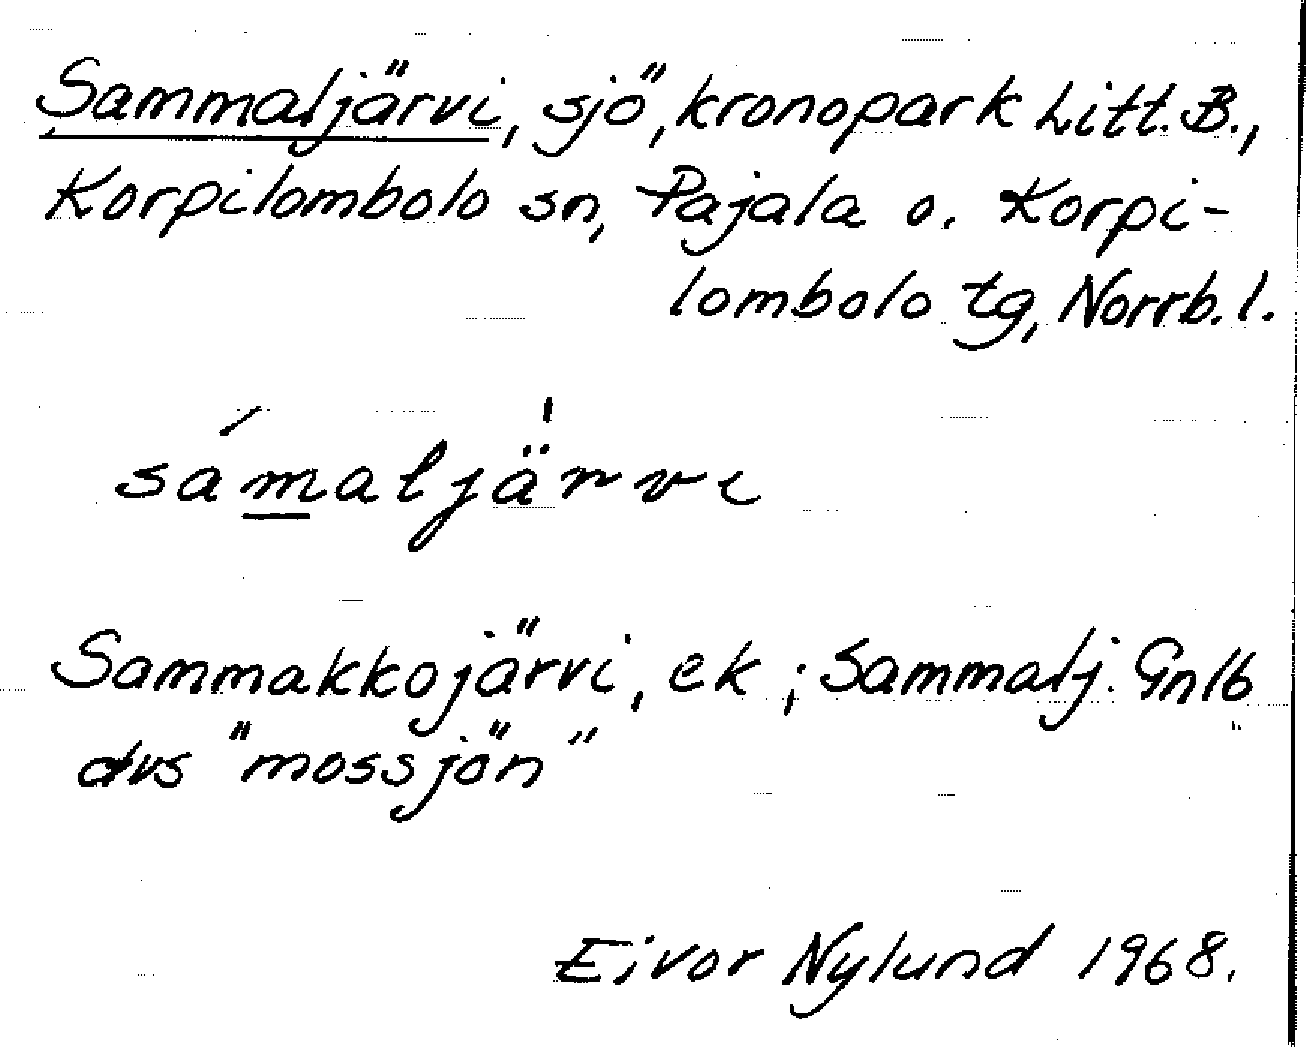 Sammaljärvi, sjö, kronopark Litt. B.,
Korpilombolo sn, Pajala o. Korpi-
lombolo tg, Norrb. l.
sámaljä'rvi
Sammakkojärvi, ek ; Sammalj. Gnlb
dvs "mossjön"
Eivor Nylund 1968.